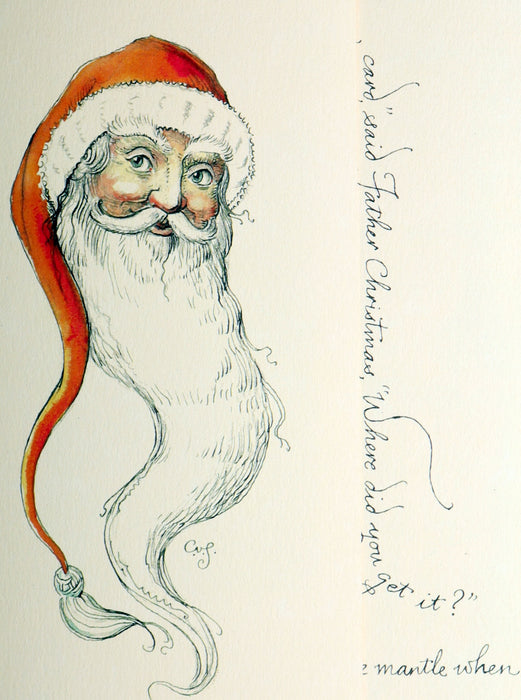 card," said Father Christmas, "Where did you get it?"
mantle when
C.v.S.